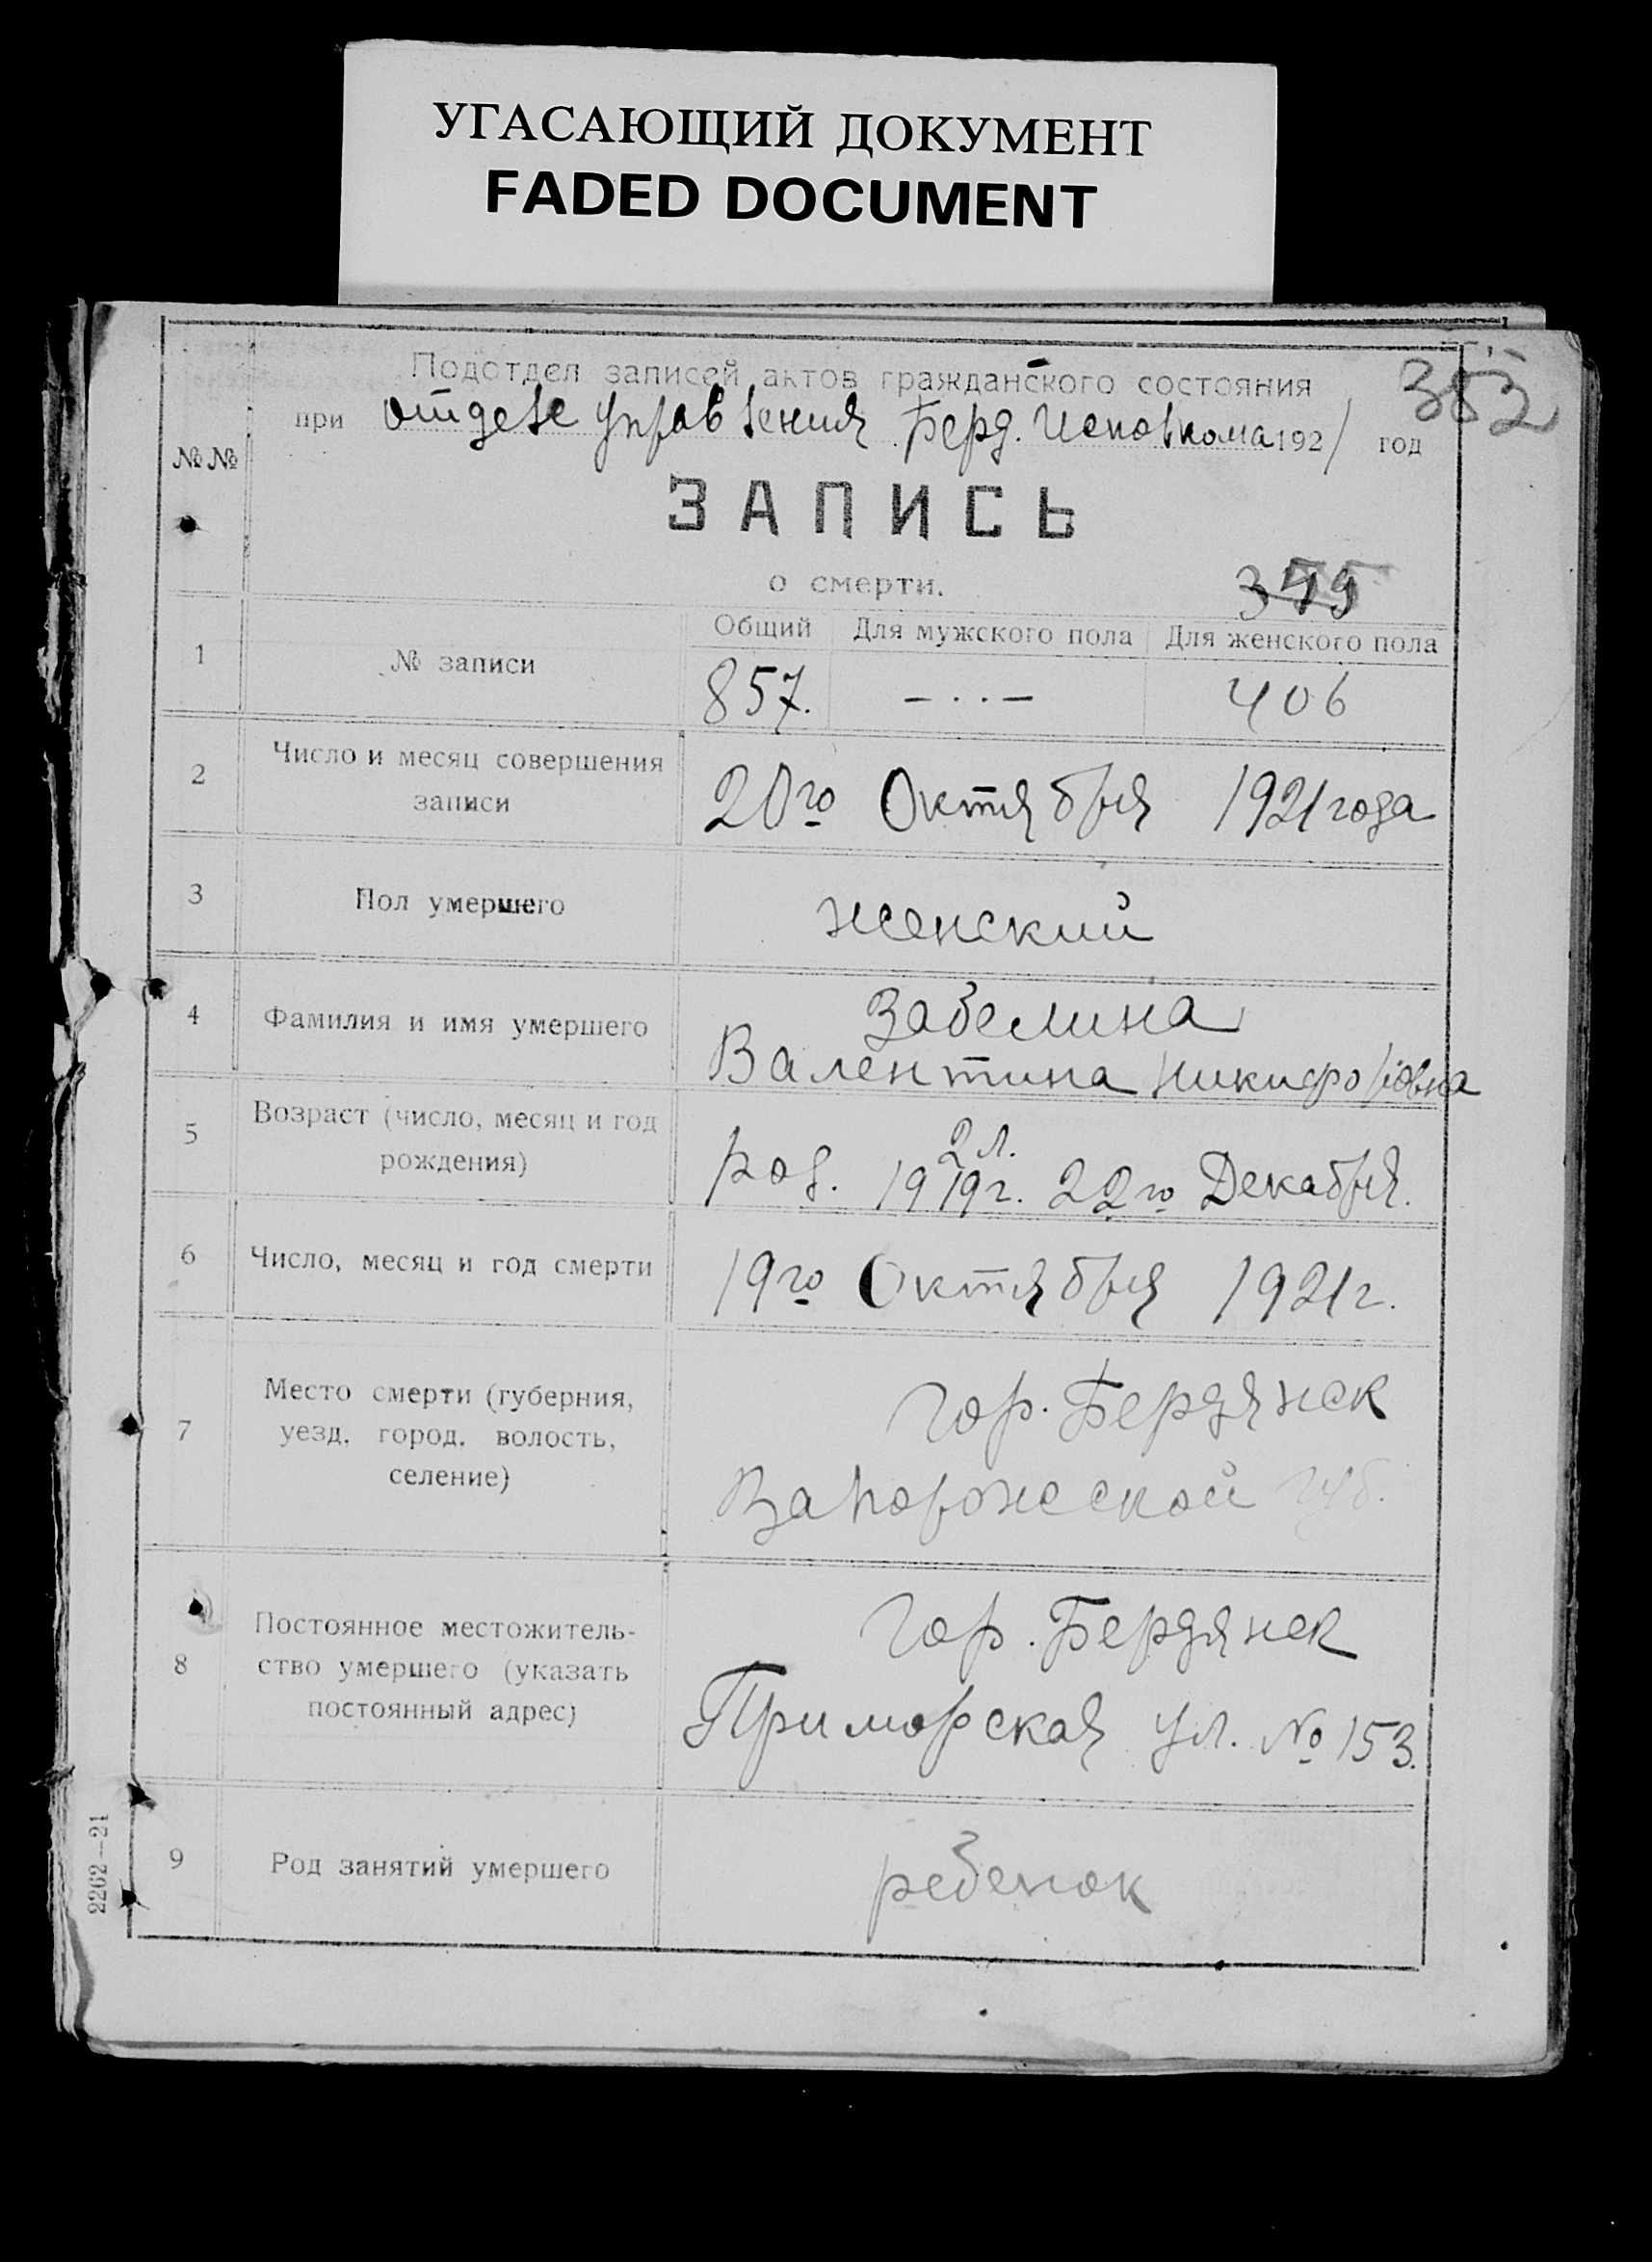 УГАСАЮЩИЙ ДОКУМЕНТ
FADED DOCUMENT
Подотдел записей актов гражданского состояния
352
при отделе управления Берд. Исполкома 1921 год
№№
ЗАПИСЬ
о смерти.
Общий Для мужского пола Для женского пола
1 № записи 857. — . . — 406
2 Число и месяц совершения записи 20го Октября 1921 года
3 Пол умершего женский
4 Фамилия и имя умершего Забелина
Валентина Никифоровна
5 Возраст (число, месяц и год рождения) 2 л.
род. 1919 г. 22го Декабря.
6 Число, месяц и год смерти 19го Октября 1921 г.
7 Место смерти (губерния, уезд, город, волость, селение) гор. Бердянск
Запорожской губ.
8 Постоянное местожитель-
ство умершего (указать постоянный адрес) гор. Бердянск
Приморская ул. № 153.
9 Род занятий умершего ребенок
2262—21